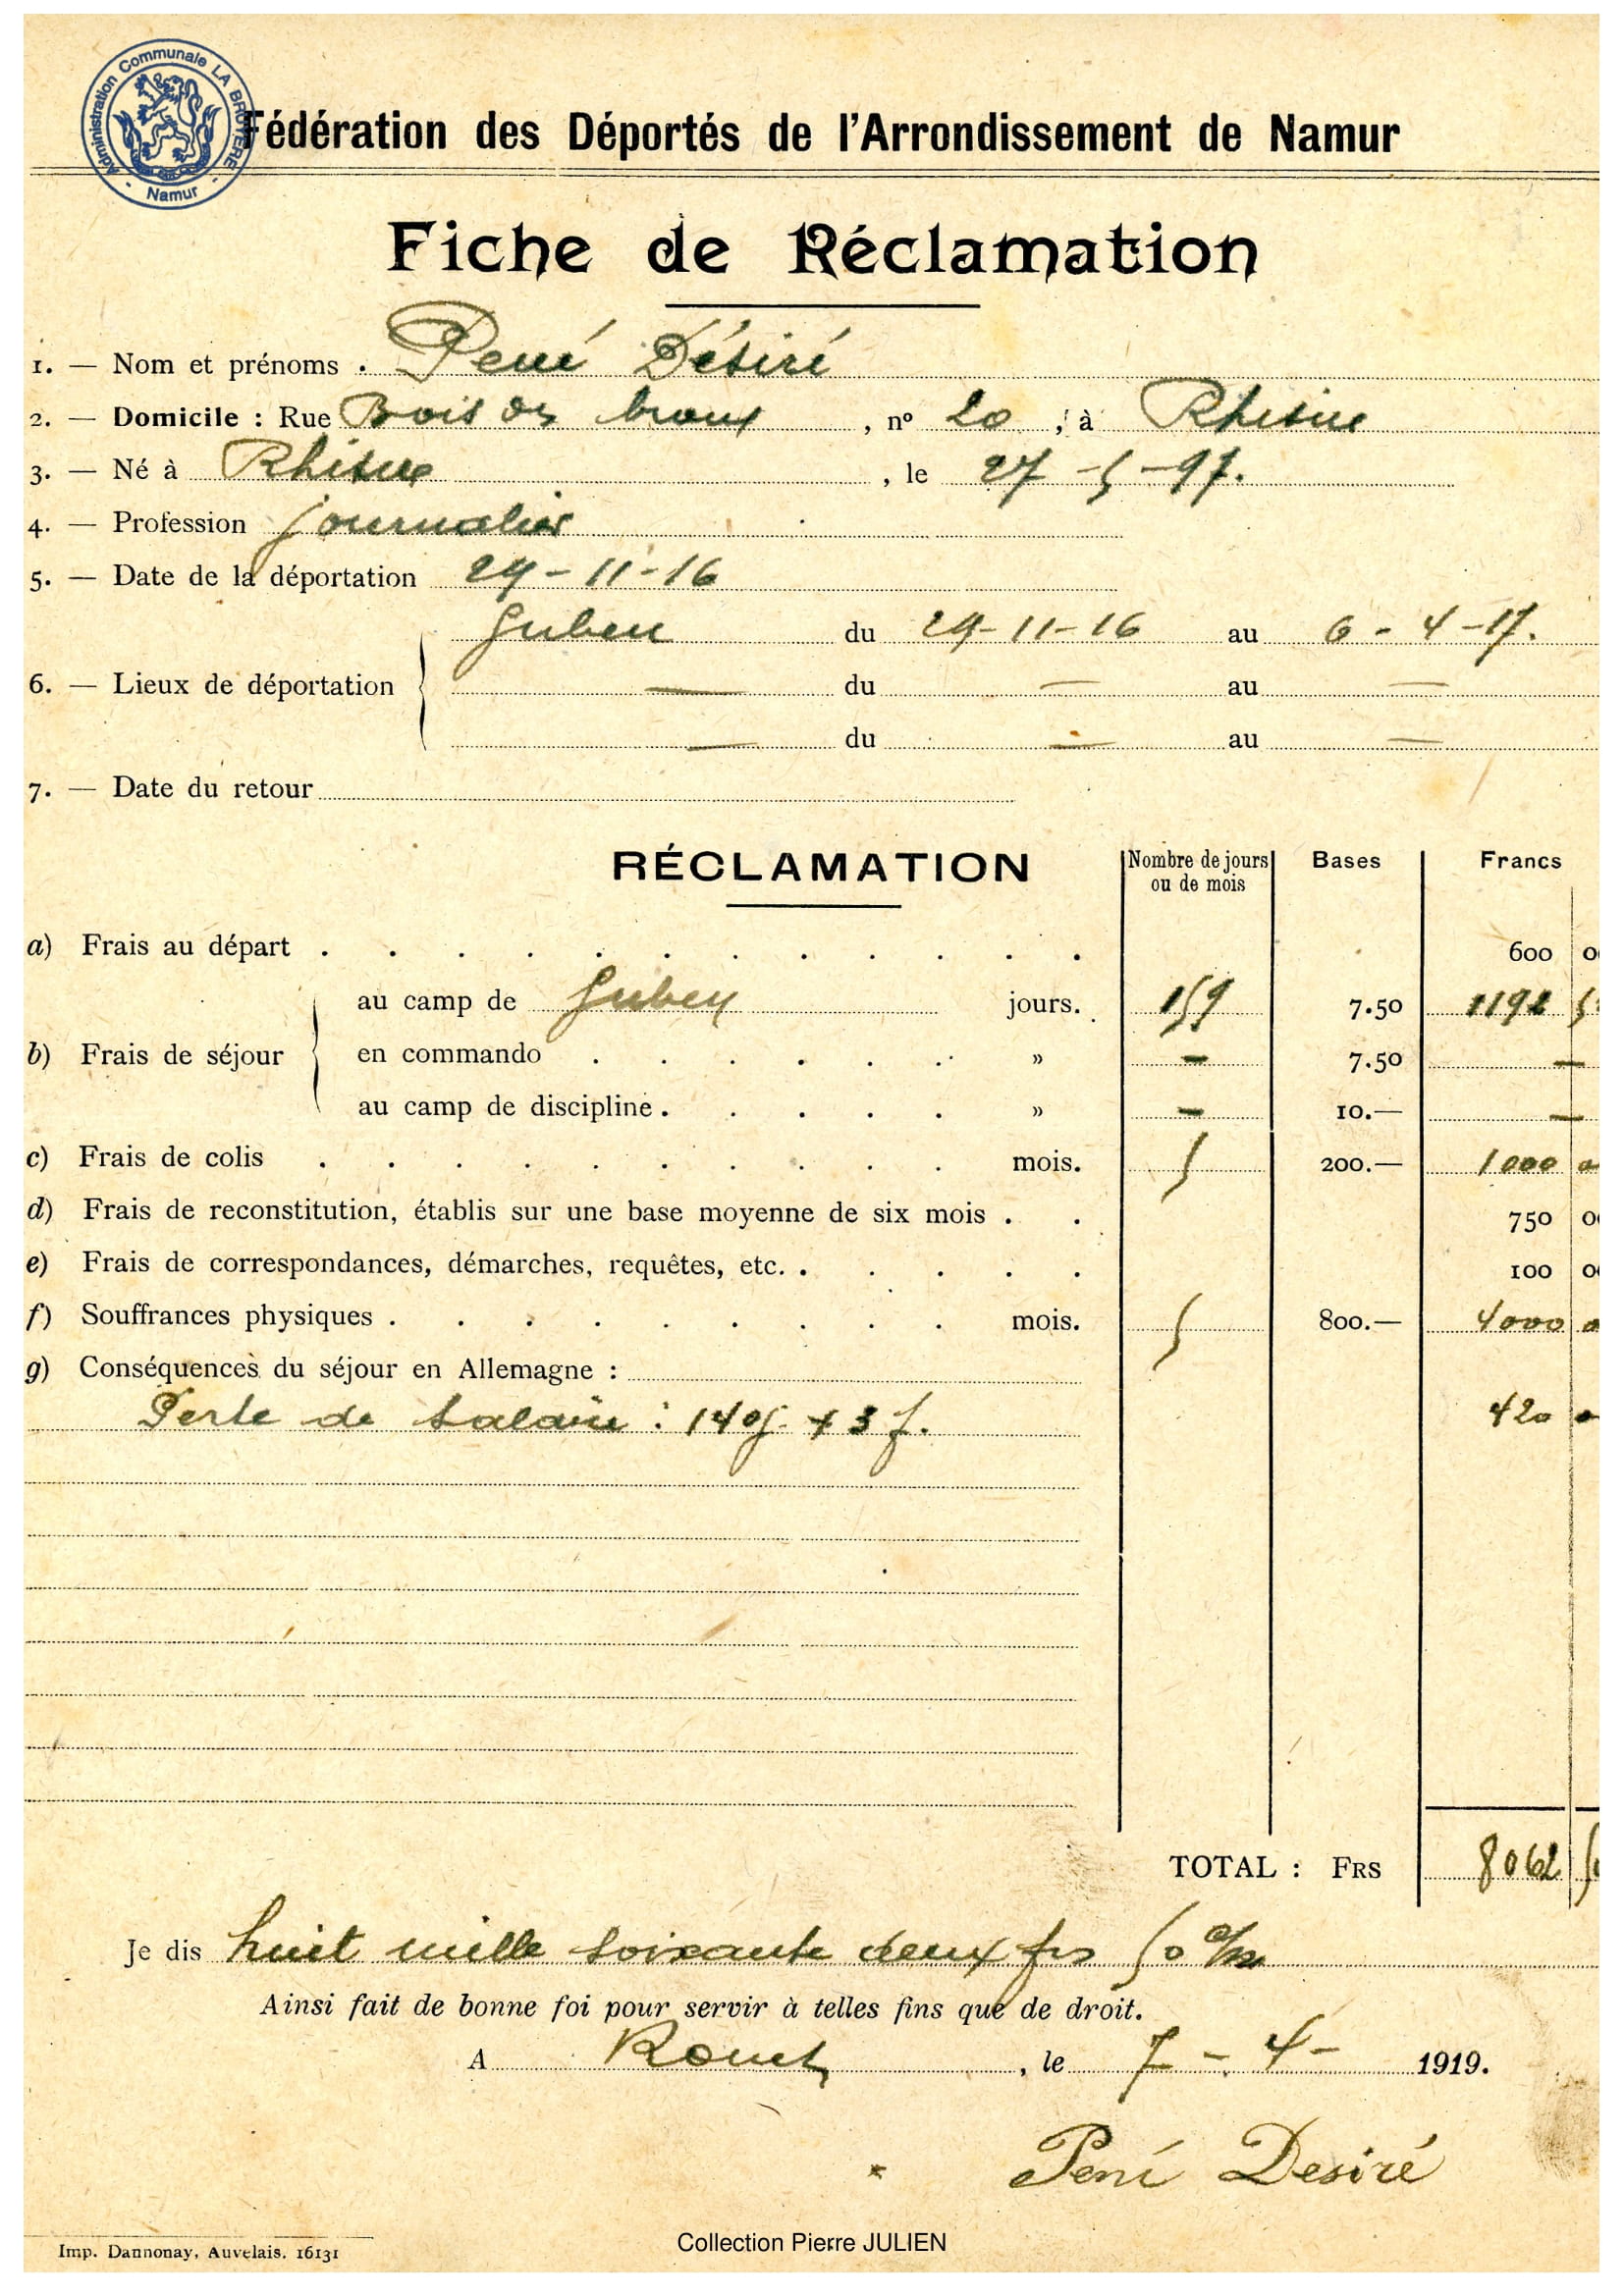 Administration Communale LA BRUYERE - Namur -
Fédération des Déportés de l'Arrondissement de Namur
Fiche de Réclamation
1. — Nom et prénoms . Pené Désiré
2. — Domicile : Rue Bois des , nº 20 , à Rhisne
3. — Né à Rhisne , le 27-5-97.
4. — Profession journalier
5. — Date de la déportation 29-11-16
Guben du 29-11-16 au 6-4-17.
6. — Lieux de déportation — du — au —
— du — au —
7. — Date du retour
RÉCLAMATION Nombre de jours ou de mois Bases Francs
a) Frais au départ . . . . . . . . . . . . 600 00
au camp de Guben jours. 159 7.50 1192 50
b) Frais de séjour en commando . . . . . . » — 7.50 —
au camp de discipline . . . . . » — 10.— —
c) Frais de colis . . . . . . . . . . mois. 5 200.— 1000 00
d) Frais de reconstitution, établis sur une base moyenne de six mois . . 750 00
e) Frais de correspondances, démarches, requêtes, etc. . . . . . 100 00
f) Souffrances physiques . . . . . . . . . mois. 5 800.— 4000 00
g) Conséquences du séjour en Allemagne :
Perte de salaire : 140j. + 3 f. 420
TOTAL : FRS 8062 50
Je dis huit mille soixante deux frs 50 c/m
Ainsi fait de bonne foi pour servir à telles fins que de droit.
A , le 7-4- 1919.
Pené Desiré
Imp. Dannonay, Auvelais. 16131
Collection Pierre JULIEN